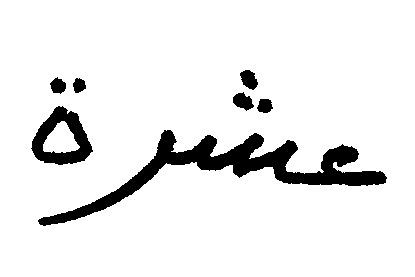 عشرة